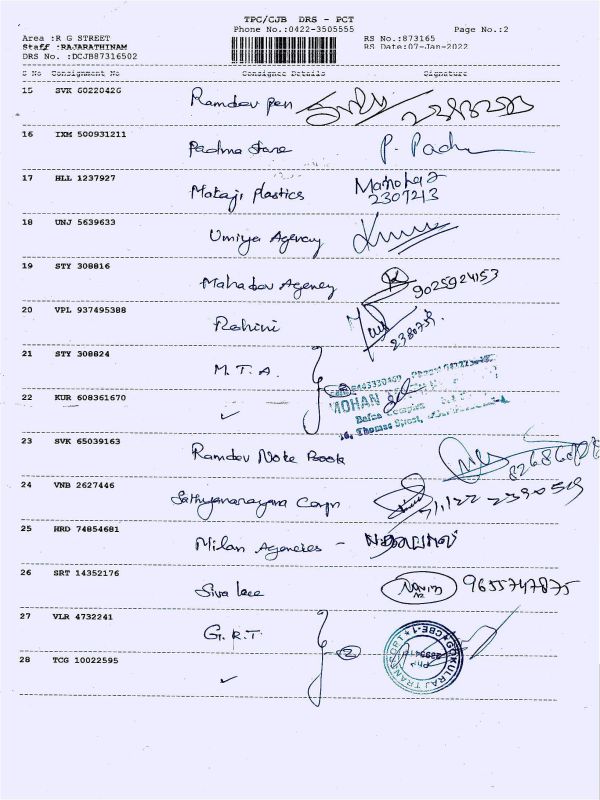 TPC/CJB DRS - PCT
Phone No.:0422-3505555 Page No.:2
Area :R G STREET RS No.:873165
Staff :RAJARATHINAM RS Date:07-Jan-2022
DRS No. :DCJB87316502
S No Consignment No Consignee Details Signature
15 SVK 60220426 Ramdev pen
16 IXM 500931211 Padma Store P. Padm
17 HLL 1237927 Mataji plastics Manohar
2307213
18 UNJ 5639633 Umiya Agency
19 STY 308816 Mahadev Agency 9025924153
20 VPL 937495388 Rohini
21 STY 308824 M.T.A.
22 KUR 608361670 ✓ MOHAN
16, Thomas Street,
23 SVK 65039163 Ramdev Note Book
24 VNB 2627446 Sathyanarayana Corpn
25 HRD 74854681 Milan Agencies -
26 SRT 14352176 Siva lace Navin 9655747875
27 VLR 4732241 G.R.T. 2
GOKULRAJ TRANSPORT ★ CBE-1
28 TCG 10022595 ✓